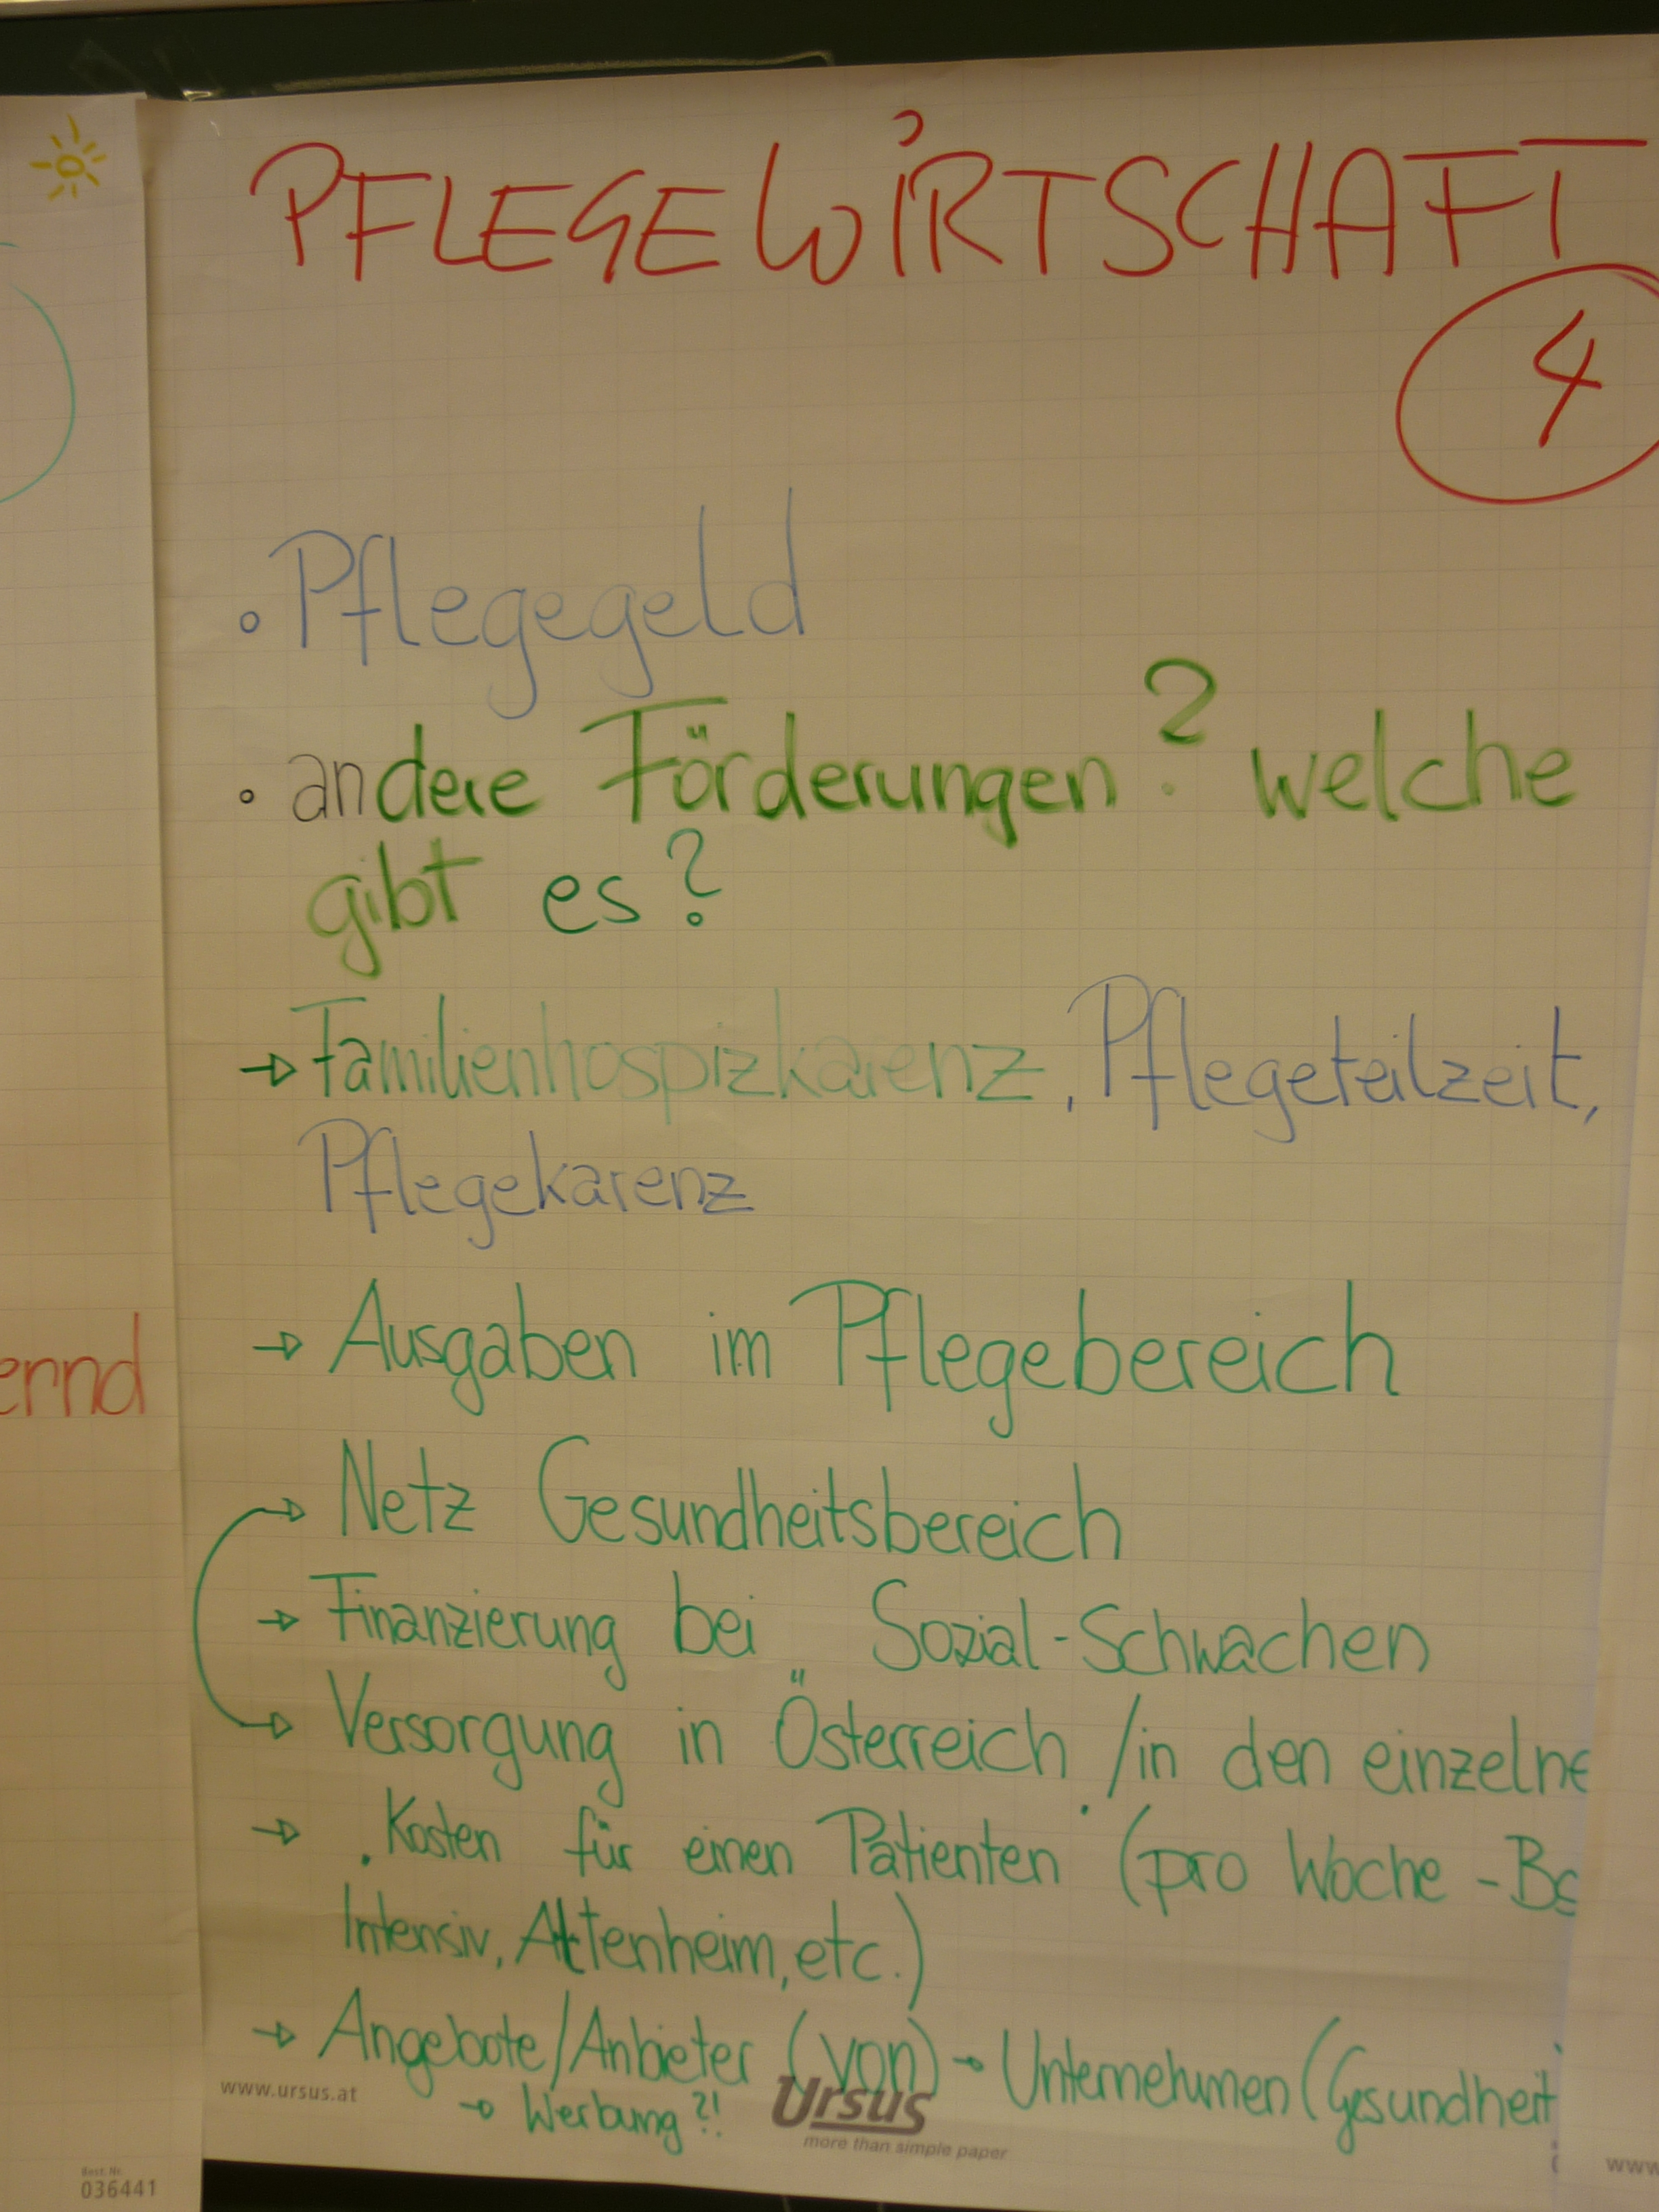 PFLEGEWIRTSCHAFT
4
• Pflegegeld
• andere Förderungen? welche
gibt es?
→ Familienhospizkarenz, Pflegeteilzeit,
Pflegekarenz
→ Ausgaben im Pflegebereich
ernd
→ Netz Gesundheitsbereich
→ Finanzierung bei Sozial-Schwachen
→ Versorgung in Österreich /in den einzelne
→ . Kosten für einen Patienten (pro Woche -
Intensiv, Altenheim, etc.)
→ Angebote/Anbieter (von) → Unternehmen (Gesundheit
→ Werbung?!
www.ursus.at
Ursus
more than simple paper
www
Best. Nr.
036441